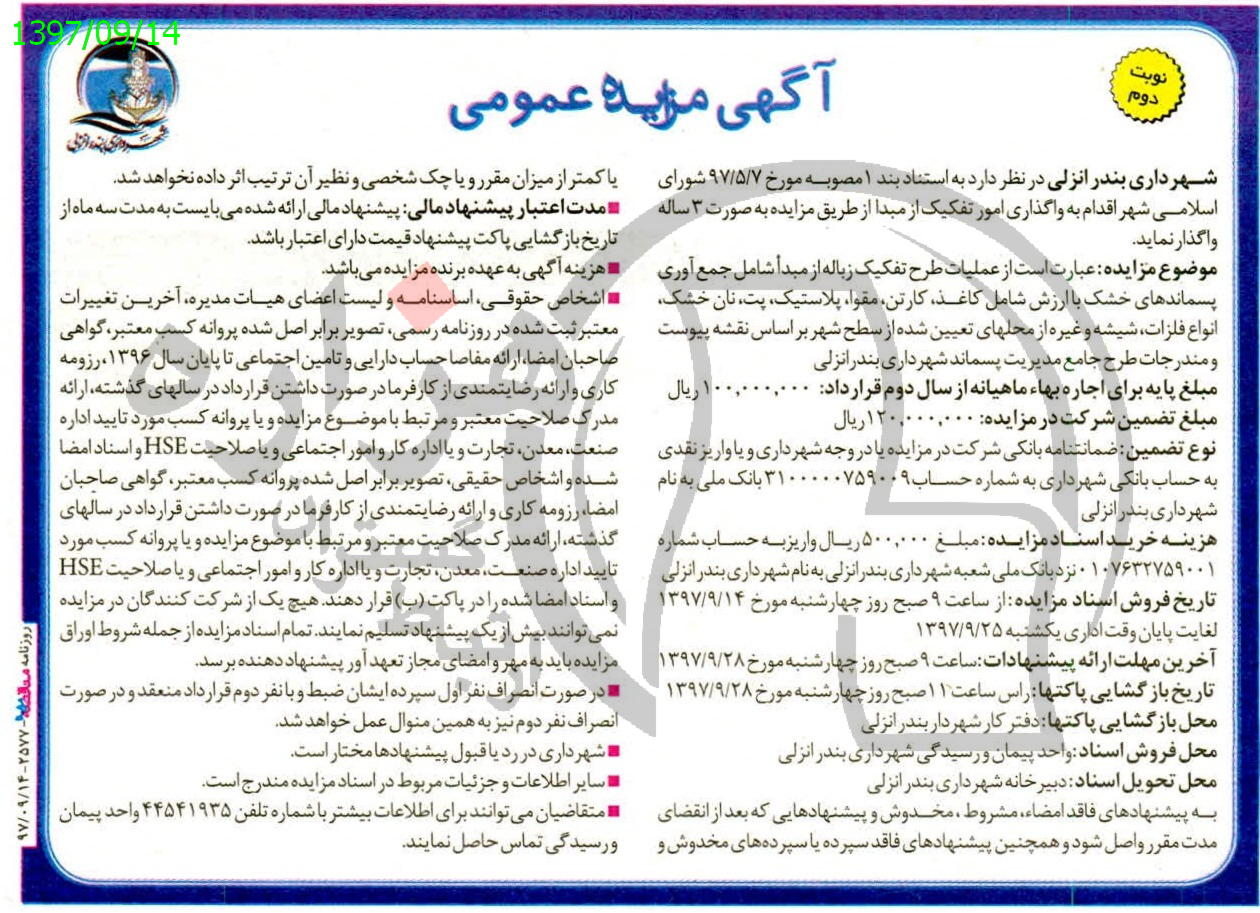 1397/09/14
آگهی مزایده عمومی
نوبت
دوم
شهرداری بندرانزلی
شـهرداری بندرانزلی در نظر دارد به استناد بند ۱ مصوبـه مورخ ۹۷/۵/۷ شورای
اسلامـی شهر اقدام به واگذاری امور تفکیک از مبدا از طریق مزایده به صورت ۳ ساله
واگذار نماید.
موضوع مزایده: عبارت است از عملیات طرح تفکیک زباله از مبدأ شامل جمع آوری
پسماندهای خشک با ارزش شامل کاغـذ، کارتن، مقوا، پلاستیک، پت، نان خشک،
انواع فلزات، شیشه و غیره از محلهای تعیین شده از سطح شهر بر اساس نقشه پیوست
و مندرجات طرح جامع مدیریت پسماند شهرداری بندرانزلی
مبلغ پایه برای اجاره بهاء ماهیانه از سال دوم قرارداد: ۱۰۰,۰۰۰,۰۰۰ ریال
مبلغ تضمین شرکت در مزایده: ۱۲۰,۰۰۰,۰۰۰ریال
نوع تضمین: ضمانتنامه بانکی شرکت در مزایده یا در وجه شهرداری و یا واریز نقدی
به حساب بانکی شهرداری به شماره حسـاب ۳۱۰۰۰۰۰۷۵۹۰۰۹ بانک ملی به نام
شهرداری بندر انزلی
هزینـه خریـد اسنـاد مزایـده: مبلـغ ۵۰۰,۰۰۰ ریـال واریز بـه حسـاب شماره
۰۱۰۷۶۳۲۷۵۹۰۰۱ نزد بانک ملی شعبه شهرداری بندرانزلی به نام شهرداری بندر انزلی
تاریخ فروش اسناد مزایده: از ساعت ۹ صبح روز چهارشنبه مورخ ۱۳۹۷/۹/۱۴
لغایت پایان وقت اداری یکشنبه ۱۳۹۷/۹/۲۵
آخرین مهلت ارائه پیشنهادات: ساعت ۹ صبح روز چهارشنبه مورخ ۱۳۹۷/۹/۲۸
تاریخ بازگشایی پاکتها: راس ساعت ۱۱ صبح روز چهارشنبه مورخ ۱۳۹۷/۹/۲۸
محل بازگشایی پاکتها: دفتر کار شهردار بندر انزلی
محل فروش اسناد: واحد پیمان و رسیدگی شهرداری بندر انزلی
محل تحویل اسناد: دبیرخانه شهرداری بندر انزلی
بـه پیشنهادهای فاقد امضاء، مشروط، مخـدوش و پیشنهادهایی که بعد از انقضای
مدت مقرر واصل شود و همچنین پیشنهادهای فاقد سپرده یا سپرده‌های مخدوش و
یا کمتر از میزان مقرر و یا چک شخصی و نظیر آن ترتیب اثر داده نخواهد شد.
■ مدت اعتبار پیشنهاد مالی: پیشنهاد مالی ارائه شده می‌بایست به مدت سه ماه از
تاریخ بازگشایی پاکت پیشنهاد قیمت دارای اعتبار باشد.
■ هزینه آگهی به عهده برنده مزایده می‌باشد.
■ اشخاص حقوقـی، اساسنامـه و لیست اعضای هیـات مدیره، آخریـن تغییرات
معتبر ثبت شده در روزنامه رسمی، تصویر برابر اصل شده پروانه کسب معتبر، گواهی
صاحبان امضا، ارائه مفاصا حساب دارایی و تامین اجتماعی تا پایان سال ۱۳۹۶، رزومه
کاری و ارائه رضایتمندی از کارفرما در صورت داشتن قرارداد در سالهای گذشته، ارائه
مدرک صلاحیت معتبر و مرتبط با موضـوع مزایده و یا پروانه کسب مورد تایید اداره
صنعت، معدن، تجارت و یا اداره کار و امور اجتماعی و یا صلاحیت HSE و اسناد امضا
شـده و اشخاص حقیقی، تصویر برابر اصل شده پروانه کسب معتبر، گواهی صاحبان
امضا، رزومه کاری و ارائه رضایتمندی از کارفرما در صورت داشتن قرارداد در سالهای
گذشته، ارائه مدرک صلاحیت معتبر و مرتبط با موضوع مزایده و یا پروانه کسب مورد
تایید اداره صنعـت، معدن، تجارت و یا اداره کار و امور اجتماعی و یا صلاحیت HSE
و اسناد امضا شده را در پاکت (ب) قرار دهند. هیچ یک از شرکت کنندگان در مزایده
نمی توانند بیش از یک پیشنهاد تسلیم نمایند. تمام اسناد مزایده از جمله شروط اوراق
مزایده باید به مهر و امضای مجاز تعهد آور پیشنهاد دهنده برسد.
■ در صورت انصراف نفر اول سپرده ایشان ضبط و با نفر دوم قرارداد منعقد و در صورت
انصراف نفر دوم نیز به همین منوال عمل خواهد شد.
■ شهرداری در رد یا قبول پیشنهادها مختار است.
■ سایر اطلاعات و جزئیات مربوط در اسناد مزایده مندرج است.
■ متقاضیان می توانند برای اطلاعات بیشتر با شماره تلفن ۴۴۵۴۱۹۳۵ واحد پیمان
و رسیدگی تماس حاصل نمایند.
روزنامه مناقصه مزایده ۲۵۷۷-۹۷/۰۹/۱۴
هزاره
گستران
ارتباط